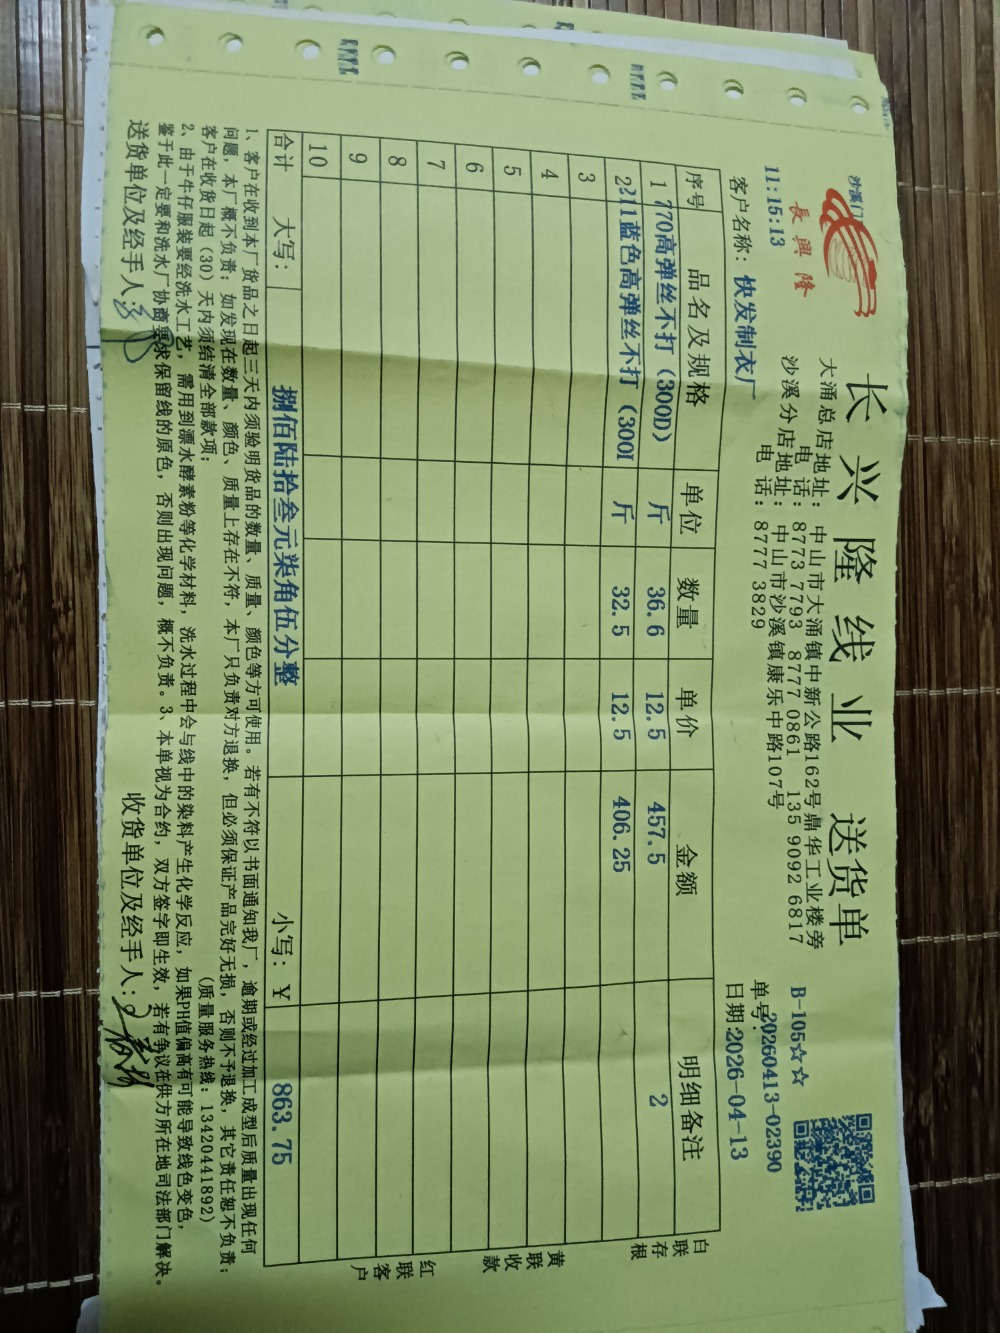 长兴隆线业 送货单
沙溪门
長興隆
大涌总店地址：中山市大涌镇中新公路162号鼎华工业楼旁
电 话：8773 7793 8777 0861 135 9092 6817
沙溪分店地址：中山市沙溪镇康乐中路107号
电 话：8777 3829
B-105☆☆
11:15:13
单号：20260413-02390
客户名称：快发制衣厂
日期:2026-04-13
序号 品名及规格 单位 数量 单价 金额 明细备注
1 770高弹丝不打（300D） 斤 36.6 12.5 457.5 2
2 211蓝色高弹丝不打（300I 斤 32.5 12.5 406.25
3
4
5
6
7
8
9
10
合计 大写： 捌佰陆拾叁元柒角伍分整 小写：￥ 863.75
白联存根
黄联收款
红联客户
1、客户在收到本厂货品之日起三天内须验明货品的数量、质量、颜色等方可使用。若有不符以书面通知我厂，逾期或经过加工成型后质量出现任何
问题，本厂概不负责；如发现在数量、颜色、质量上存在不符，本厂只负责对方退换，但必须保证产品完好无损，否则不予退换，其它责任恕不负责；
客户在收货日起（30）天内须结清全部款项； （质量服务热线：13420441892）
2、由于牛仔服装要经洗水工艺，需用到漂水酵素粉等化学材料，洗水过程中会与线中的染料产生化学反应，如果PH值偏高有可能导致线色变色，
鉴于此一定要和洗水厂协商要求保留线的原色，否则出现问题，概不负责。3、本单视为合约，双方签字即生效，若有争议在供方所在地司法部门解决。
送货单位及经手人： 收货单位及经手人：